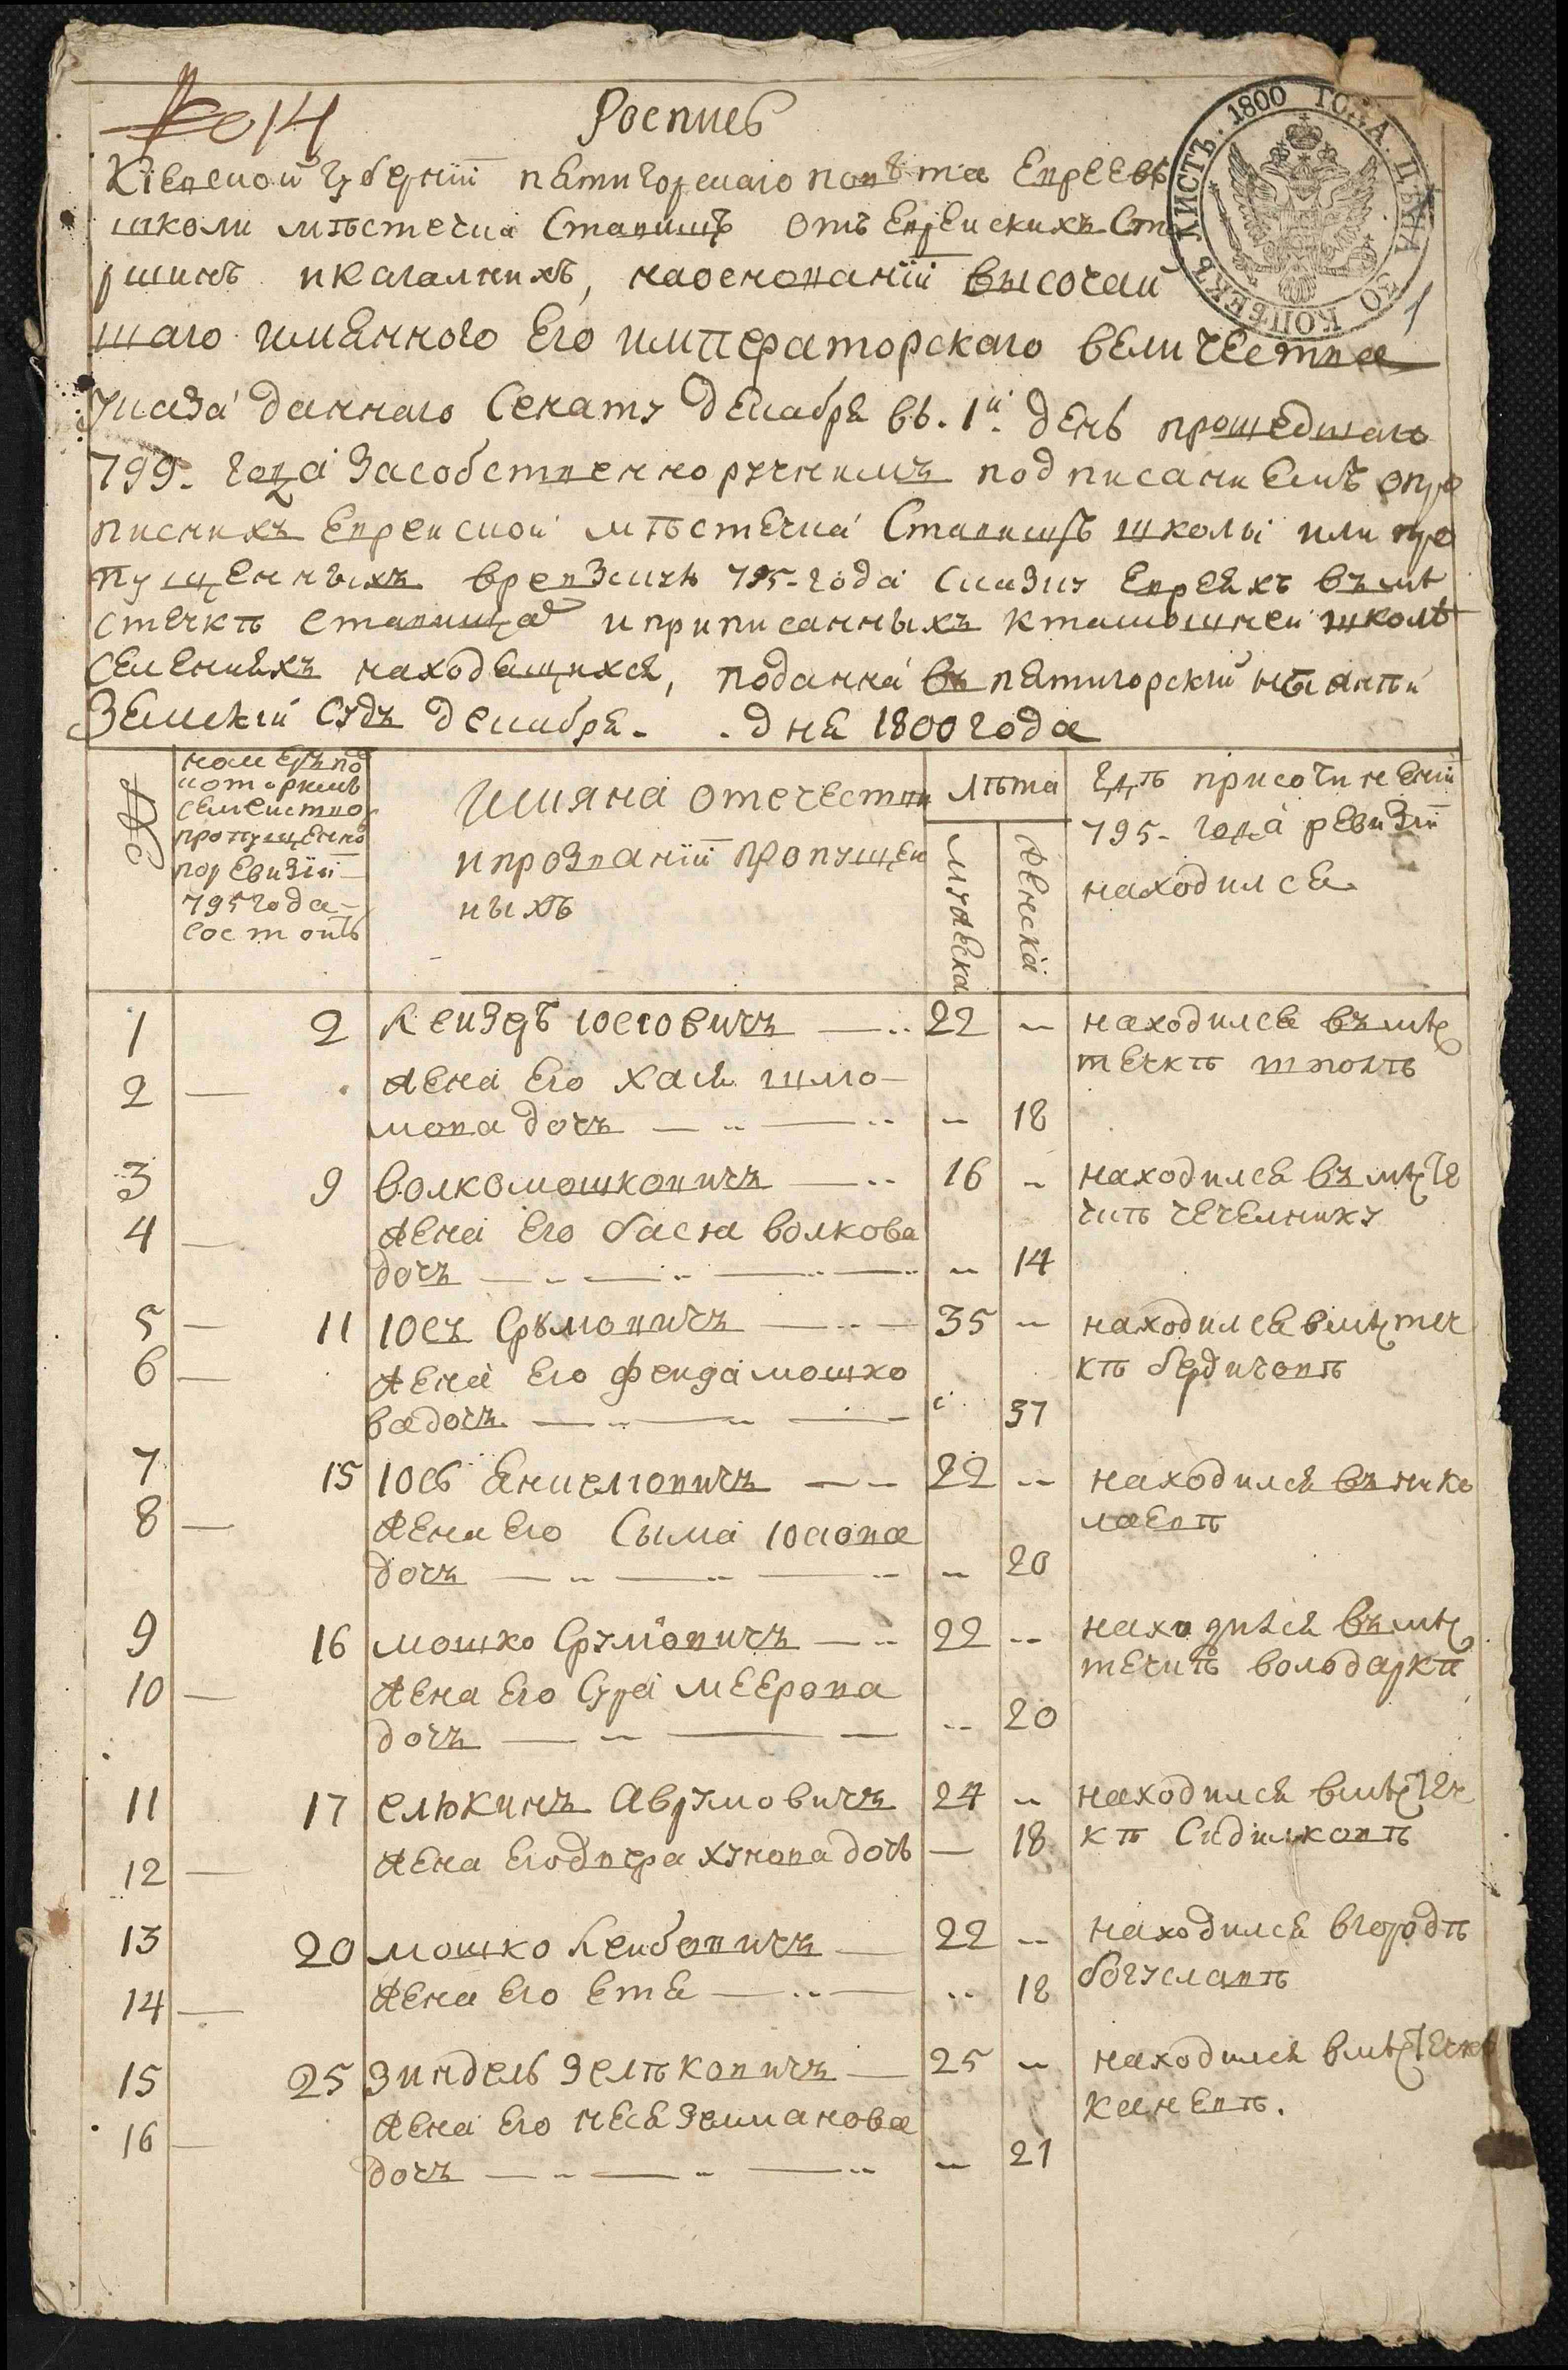 № 014
Роспись
1800 ГОДА. ЦѢНА 30 КОПѢЕКЪ ЛИСТЪ.
1
Кіевской губерніи пятигорскаго повѣта Евреевъ
школи мѣстечка Ставищъ отъ Еврейскихъ Ста
ршинъ и кагалнихъ, на основаніи высочай
шаго имянного Его императорскаго величества
указа данного Сенату декабря въ. 1й. день прошедшаго
799. года за собственноручнимъ подписаниемъ о про
писнихъ Еврейской мѣстечка Ставищъ школы или про
пущенныхъ в ревизию 795-года сказку Евреяхъ въ мѣ
стечкѣ Ставищах и приписанныхъ к тамошней школѣ
селенияхъ находящихся, поданна въ пятигорский
Земскій Судъ декабря. . дня 1800 года
№
номеръ под
которимъ
семейство
пропущенно
по ревизіи
795 года
состоитъ
Имяна отечестви
и прозваніи пропущен
ныхъ
лѣта
мужеска
женска
гдѣ при сочинении
795- года ревизіи
находился
1 2 Лейзеръ Юсювичъ — .. 22 — находился въ мѣс
течкѣ тполѣ
2 — жена Его Хася шмо-
мова дочъ — .. — .. — 18
3 9 Волко мошковичъ — .. 16 — находился въ мѣсте
чкѣ чечелнику
4 — жена Его бася волкова
дочъ — .. — .. — .. — .. — 14
5 — 11 Юсъ Срумовичъ — .. — 35 — находился в мѣстеч
кѣ бердичовѣ
6 — жена Его фейга мошко
ва дочъ — .. — .. — 37
7 15 Юсь Аншелювичъ — .. 22 — находился въ нико
лаевѣ
8 — жена Его Сыма Юсиова
дочъ — .. — .. — .. — 20
9 16 мошко Срумовичъ — .. 22 — находился въ мѣс
течкѣ володаркѣ
10 — жена Его Сура меерова
дочъ — .. — — .. 20
11 17 елюкимъ Аврумовичъ 24 — находился в мѣстеч
кѣ Сидилковѣ
12 — жена Его двера хунова дочь — 18
13 20 мошко Лейбовичъ — 22 — находился в городѣ
богуславѣ
14 — жена Его Етя — .. — .. 18
15 25 Зиндель Зелѣковичъ — 25 — находился в мѣстечкѣ
каневѣ.
16 — жена Его песя Зелманова
дочъ — .. — .. — .. — 21